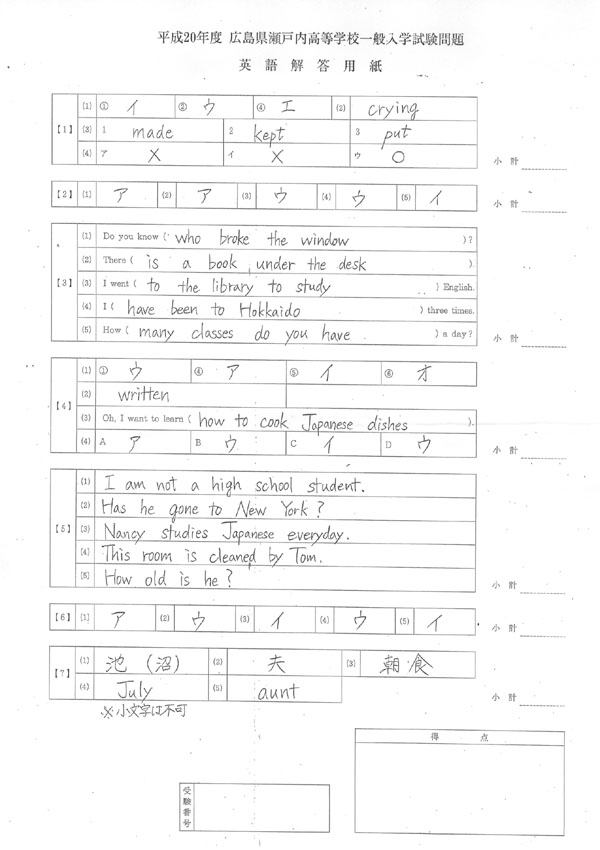 平成20年度 広島県瀬戸内高等学校一般入学試験問題
英語解答用紙
【1】 (1) ① イ ② ウ ④ エ (2) crying
(3) 1 made 2 kept 3 put
(4) ア × イ × ウ ○ 小計
【2】 (1) ア (2) ア (3) ウ (4) ウ (5) イ 小計
【3】 (1) Do you know ( who broke the window )?
(2) There ( is a book under the desk ).
(3) I went ( to the library to study ) English.
(4) I ( have been to Hokkaido ) three times.
(5) How ( many classes do you have ) a day? 小計
【4】 (1) ③ ウ ④ ア ⑤ イ ⑥ オ
(2) written
(3) Oh, I want to learn ( how to cook Japanese dishes ).
(4) A ア B ウ C イ D ウ 小計
【5】 (1) I am not a high school student.
(2) Has he gone to New York?
(3) Nancy studies Japanese everyday.
(4) This room is cleaned by Tom.
(5) How old is he? 小計
【6】 (1) ア (2) ウ (3) イ (4) ウ (5) イ 小計
【7】 (1) 池(沼) (2) 夫 (3) 朝食
(4) July (5) aunt 小計
※小文字は不可
得点
受験番号